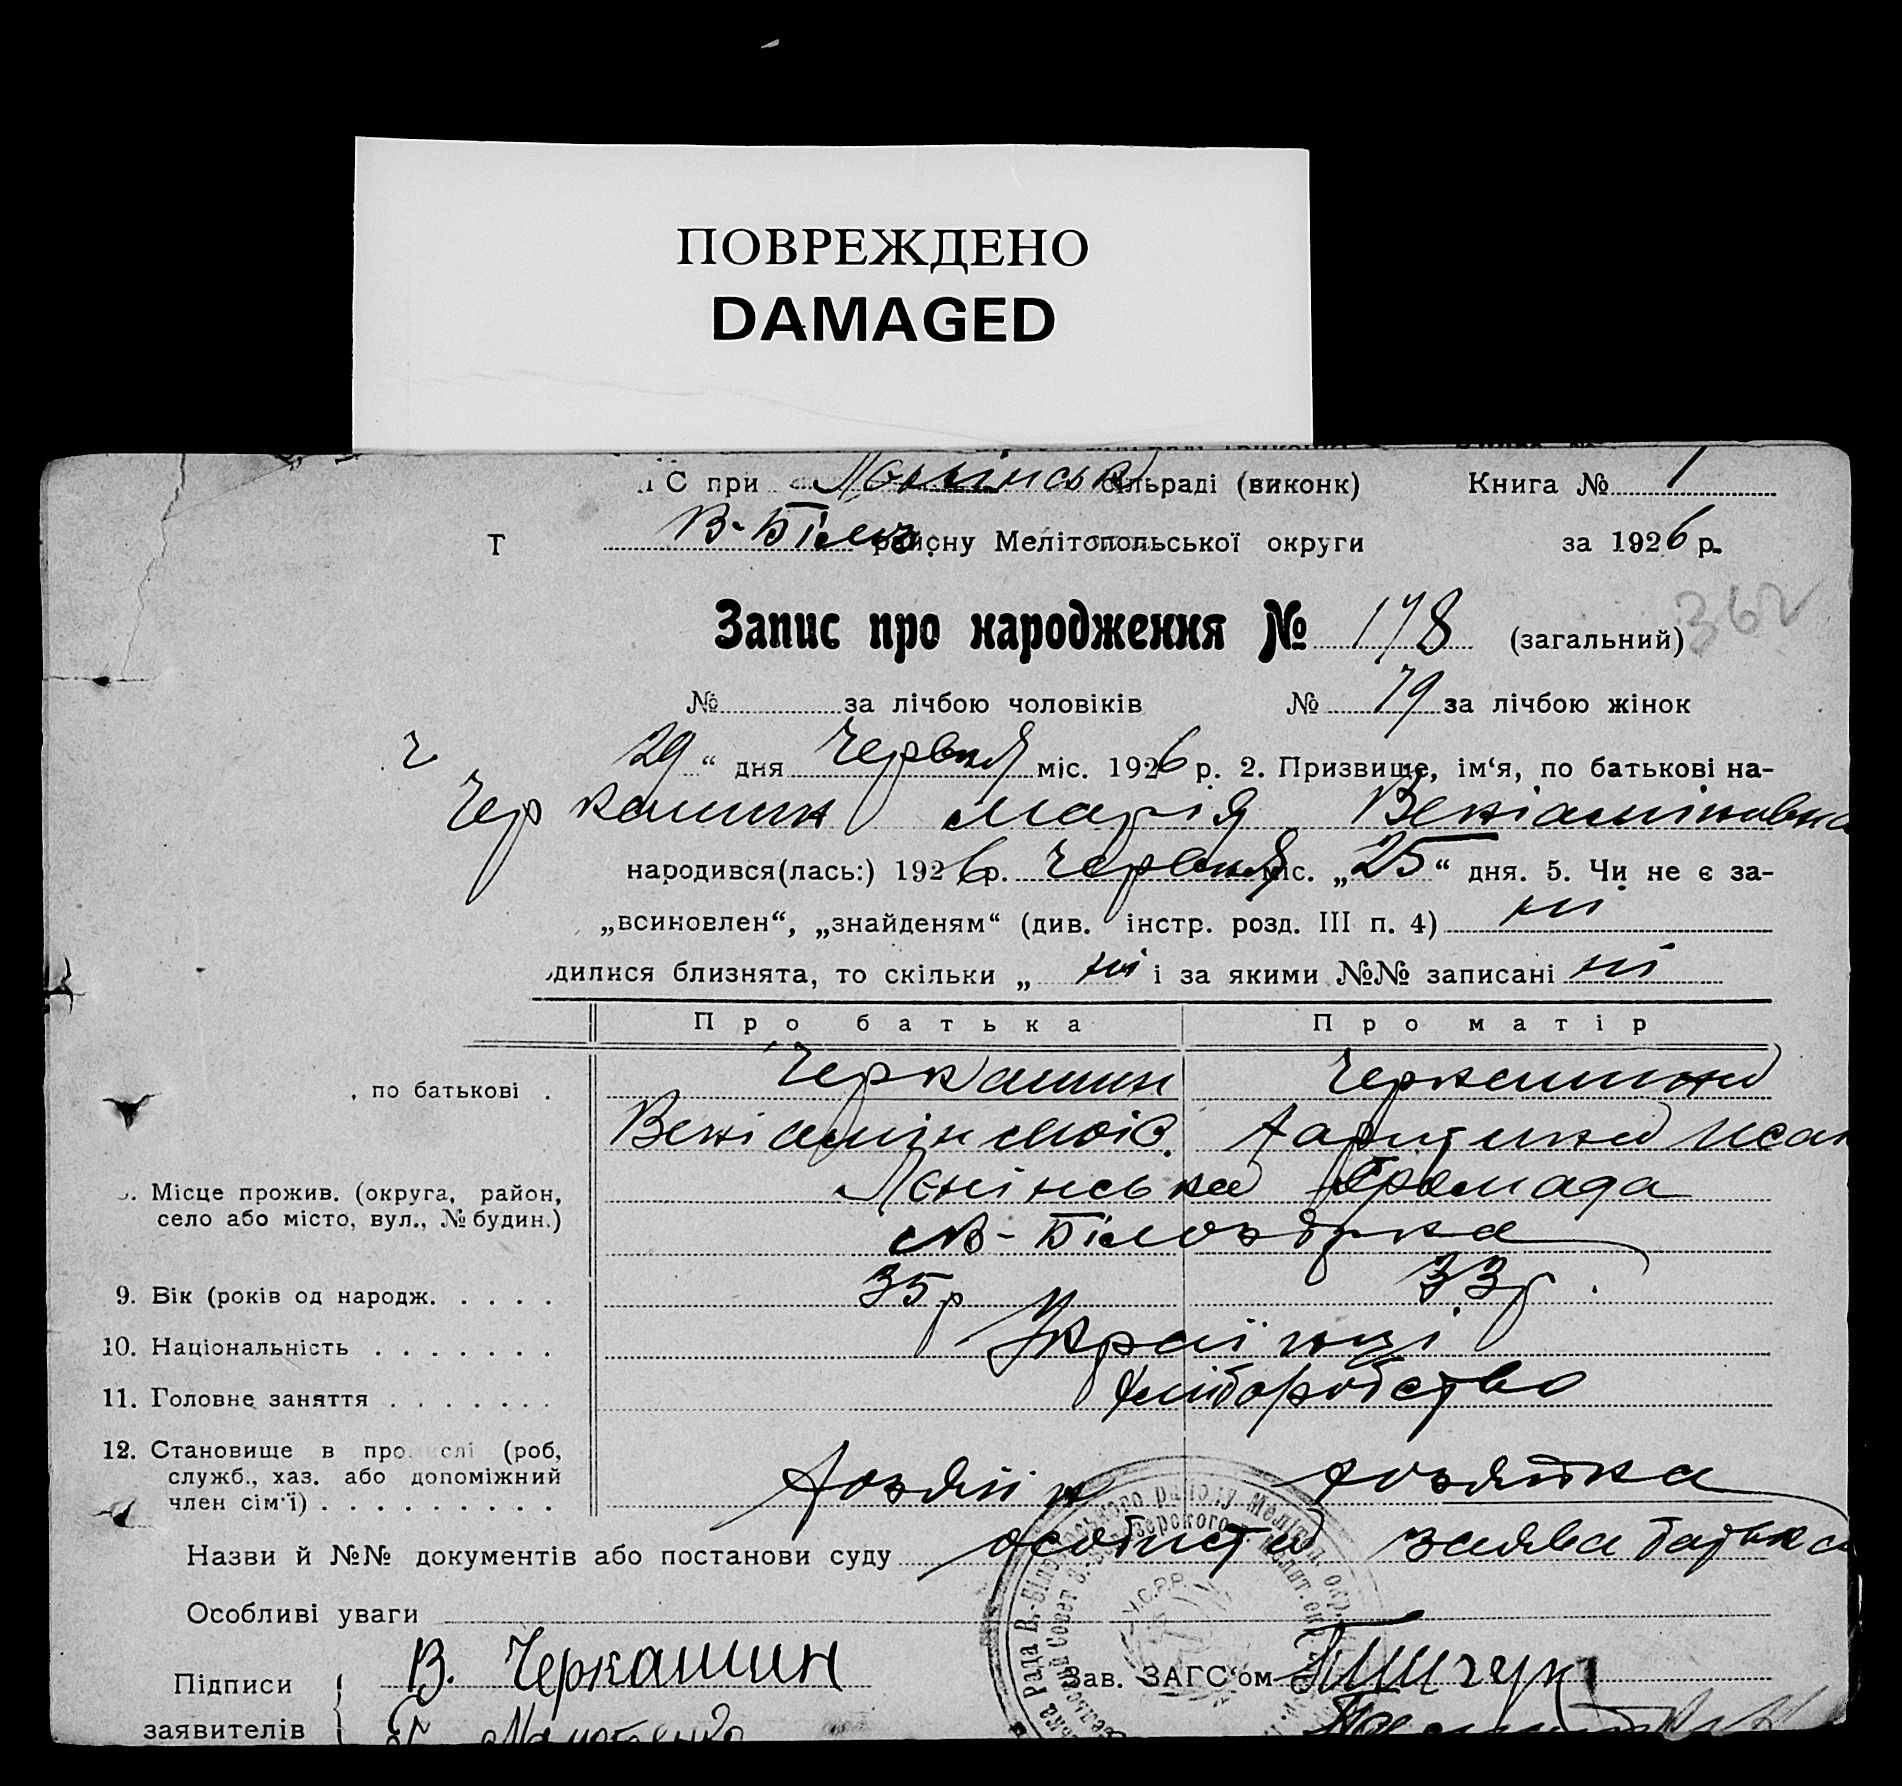 ПОВРЕЖДЕНО
DAMAGED
С при сільраді (виконк) Книга № 1
В-Біло району Мелітопольської округи за 1926 р.
Запис про народження № 178 (загальний) 362
№ за лічбою чоловіків № 79 за лічбою жінок
29 “ дня Червня міс. 1926 р. 2. Призвище, ім‘я, по батькові на-
Черкашин Марія Веніаміновна
народився(лась:) 1926 р. Червня міс. „ 25 “ дня. 5. Чи не є за-
„всиновлен“, „знайденям“ (див. інстр. розд. III п. 4) ні
дилися близнята, то скільки „ ні і за якими №№ записані ні
Про батька Про матір
Черкашин Черкашина
, по батькові .
Веніамін
Місце прожив. (округа, район, Ленінська Громада
село або місто, вул., № будин.) В-Білозірка
9. Вік (років од народж. . . . . 35 р 33 р.
10. Національність . . . . . . . Українці
11. Головне заняття . . . . . . . хліборобство
12. Становище в про слі (роб,
служб., хаз. або допоміжний
член сім‘ї) . . . . . . . . . Хозяїн Хозяйка
Назви й №№ документів або постанови суду особиста заява батька
Особливі уваги
Підписи В. Черкашин Зав. ЗАГС‘ом
заявителів
У.С.Р.Р.